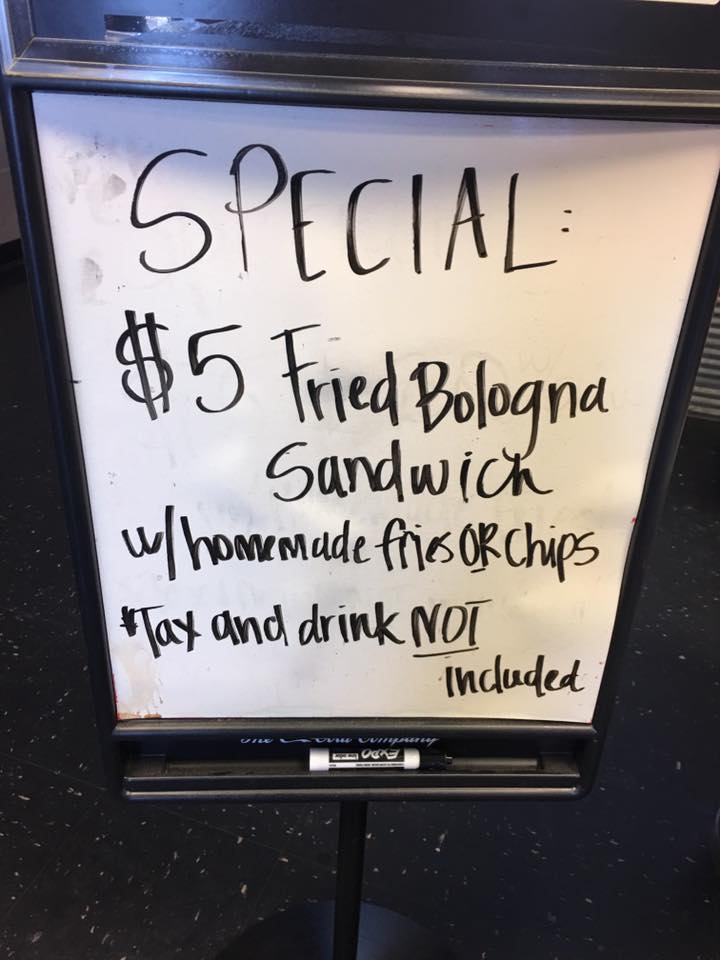 SPECIAL:
$5 Fried Bologna
Sandwich
w/homemade fries OR Chips
*Tax and drink NOT
included
The Coca-Cola Company
EXPO